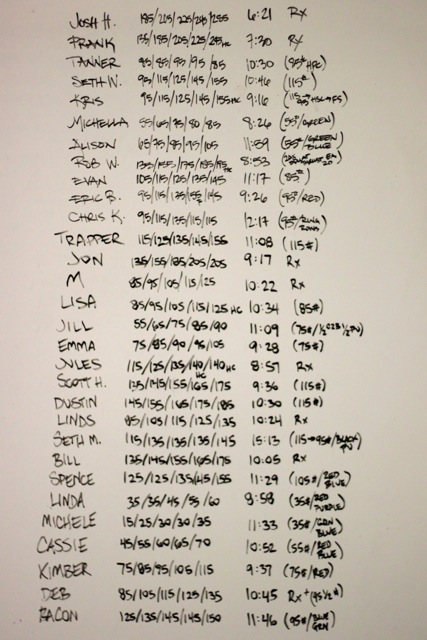 JOSH H. 185/205/225/245/255 6:21 RX
FRANK 135/185/205/225/245HC 7:30 RX
TANNER 85/85/95/95/85 10:30 (85# HPC)
SETH W. 95/115/125/145/155 10:46 (115#)
KRIS 95/115/125/145/155HC 9:16
MICHELLA 55/65/75/80/85 8:26 (55#/GREEN)
ALISON 65/75/85/95/105 11:59 (55#/GREEN BLUE)
ROB W. 8:53
EVAN 105/115/125/135/145 11:17 (85#)
ERIC B. 9:26 (95#/RED)
CHRIS K. 95/115/135/115/115 12:17 (95#/RING ROWS)
TRAPPER 115/125/135/145/155 11:08 (115#)
JON 135/155/185/205/205 9:17 RX
M 85/95/105/115/125 10:22 RX
LISA 85/95/105/115/125 HC 10:34 (85#)
JILL 55/65/75/85/90 11:09
EMMA 75/85/90/95/105 9:28 (75#)
JULES 115/125/135/140/140HC 8:57 RX
SCOTT H. 135/145/155/165/175 9:36 (115#)
DUSTIN 145/155/165/175/185 10:30 (115#)
LINDS 85/105/115/125/135 10:24 RX
SETH M. 115/135/135/135/145 15:13 (115→95#/BLACK PU)
BILL 135/145/155/165/175 10:05 RX
SPENCE 125/125/135/145/155 11:29 (105#/RED BLUE)
LINDA 35/35/45/55/60 9:58 (35#/RED PURPLE)
MICHELE 15/25/30/30/35 11:33 (35#/GRN BLUE)
CASSIE 45/55/60/65/70 10:52 (55#/RED BLUE)
KIMBER 75/85/95/105/115 9:37 (75#/RED)
DEB 85/105/115/125/135 10:45 RX+
BACON 125/135/145/145/150 11:46 (95#/BLUE GRN)